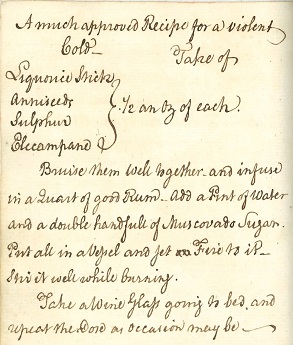 A much approved Recipe for a violent
Cold Take of
Liquorice Stick
Anniseeds
Sulphur
Elecampane
1/2 an Oz of each.
Bruise them well together and infuse
in a Quart of good Rum - Add a Pint of Water
and a double handfull of Muscovado Sugar.
Put all in a Vessel and set on Fire to it -
Stir it well while burning.
Take a Wine Glass going to bed, and
repeat the Dose as occasion may be -